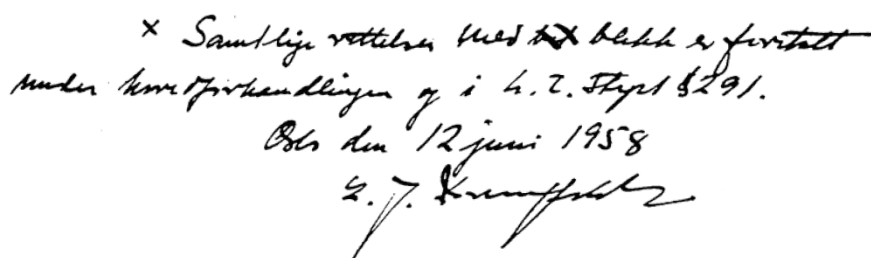 × Samtlige rettelser med blekk er foretatt
under hovedforhandlingen og i h. t. Strpl § 291.
Oslo den 12 juni 1958